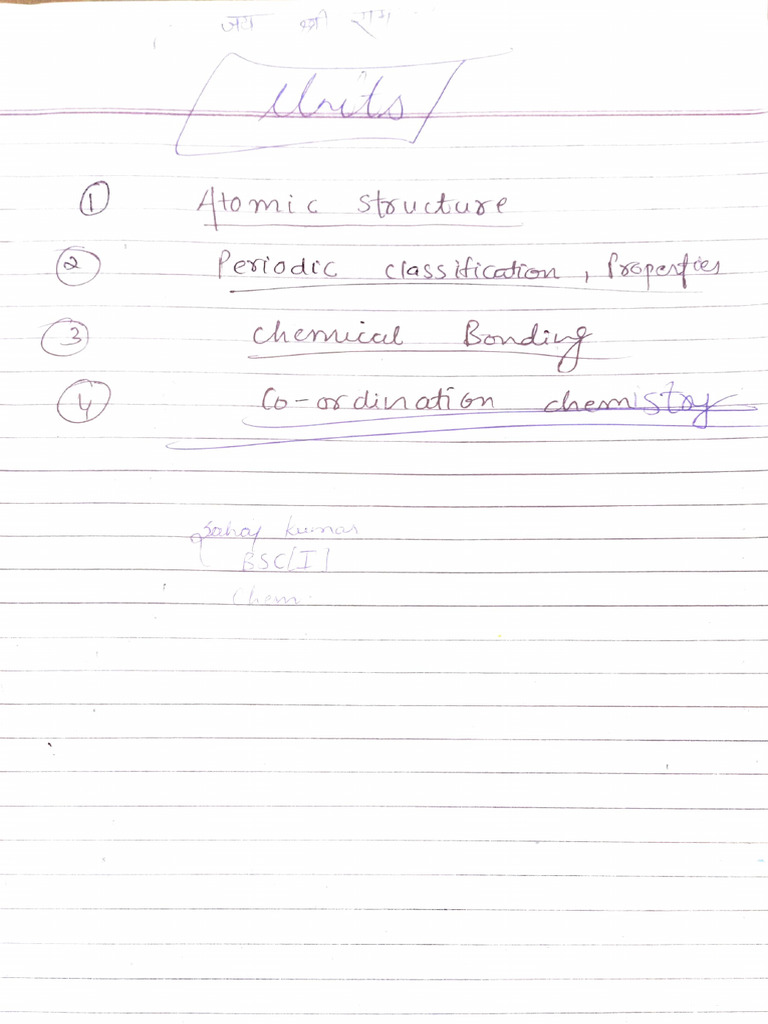 जय श्री राम
Units
① Atomic structure
② Periodic classification, Properties
③ chemical Bonding
④ Co-ordination chemistry
kumar
BSC[I]
Chem.